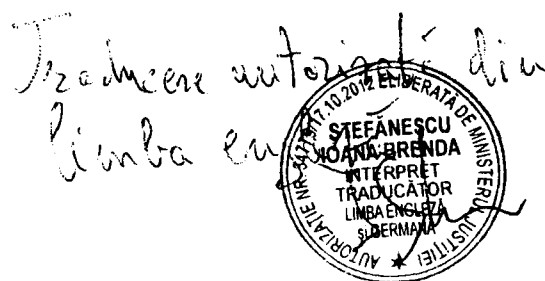 Traducere autorizată din
limba engleză
AUTORIZAȚIE NR. 34779/17.10.2012 ELIBERATĂ DE MINISTERUL JUSTIȚIEI
ȘTEFĂNESCU
IOANA-BRENDA
INTERPRET
TRADUCĂTOR
LIMBA ENGLEZĂ
ȘI GERMANĂ